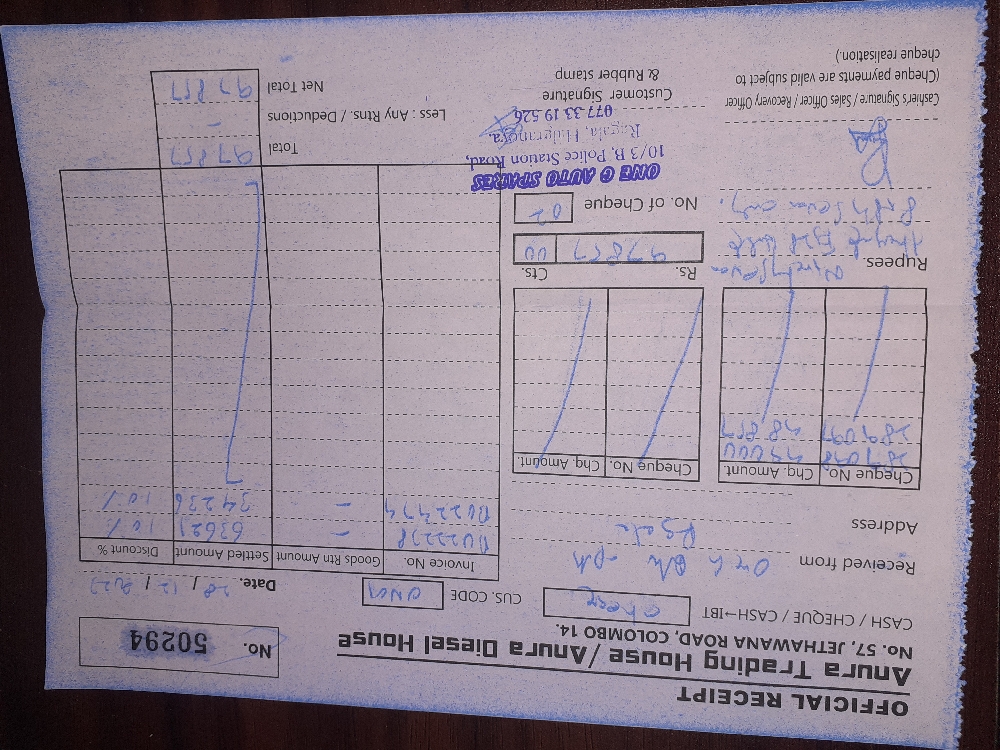 OFFICIAL RECEIPT
Anura Trading House / Anura Diesel House
No. 57, JETHAWANA ROAD, COLOMBO 14.
No. 50294
CASH / CHEQUE / CASH→IBT
CUS. CODE
Date. 28 / 12 /
Received from
Address
Cheque No. Chq. Amount.
Cheque No. Chq. Amount.
Invoice No. Goods Rtn Amount Settled Amount Discount %
63621 10%
34236 10%
289097 48857
Rs. Cts.
97857 00
Rupees. Ninety Seven
No. of Cheque 02
ONE 6 AUTO SPARES
10/3 B, Police Station Road,
Ragala, Halgranoya.
077 33 19 526
Cashier's Signature / Sales Officer / Recovery Officer
(Cheque payments are valid subject to
cheque realisation.)
Customer Signature
& Rubber stamp
Total 97857
Less : Any Rtns. / Deductions -
Net Total 97857